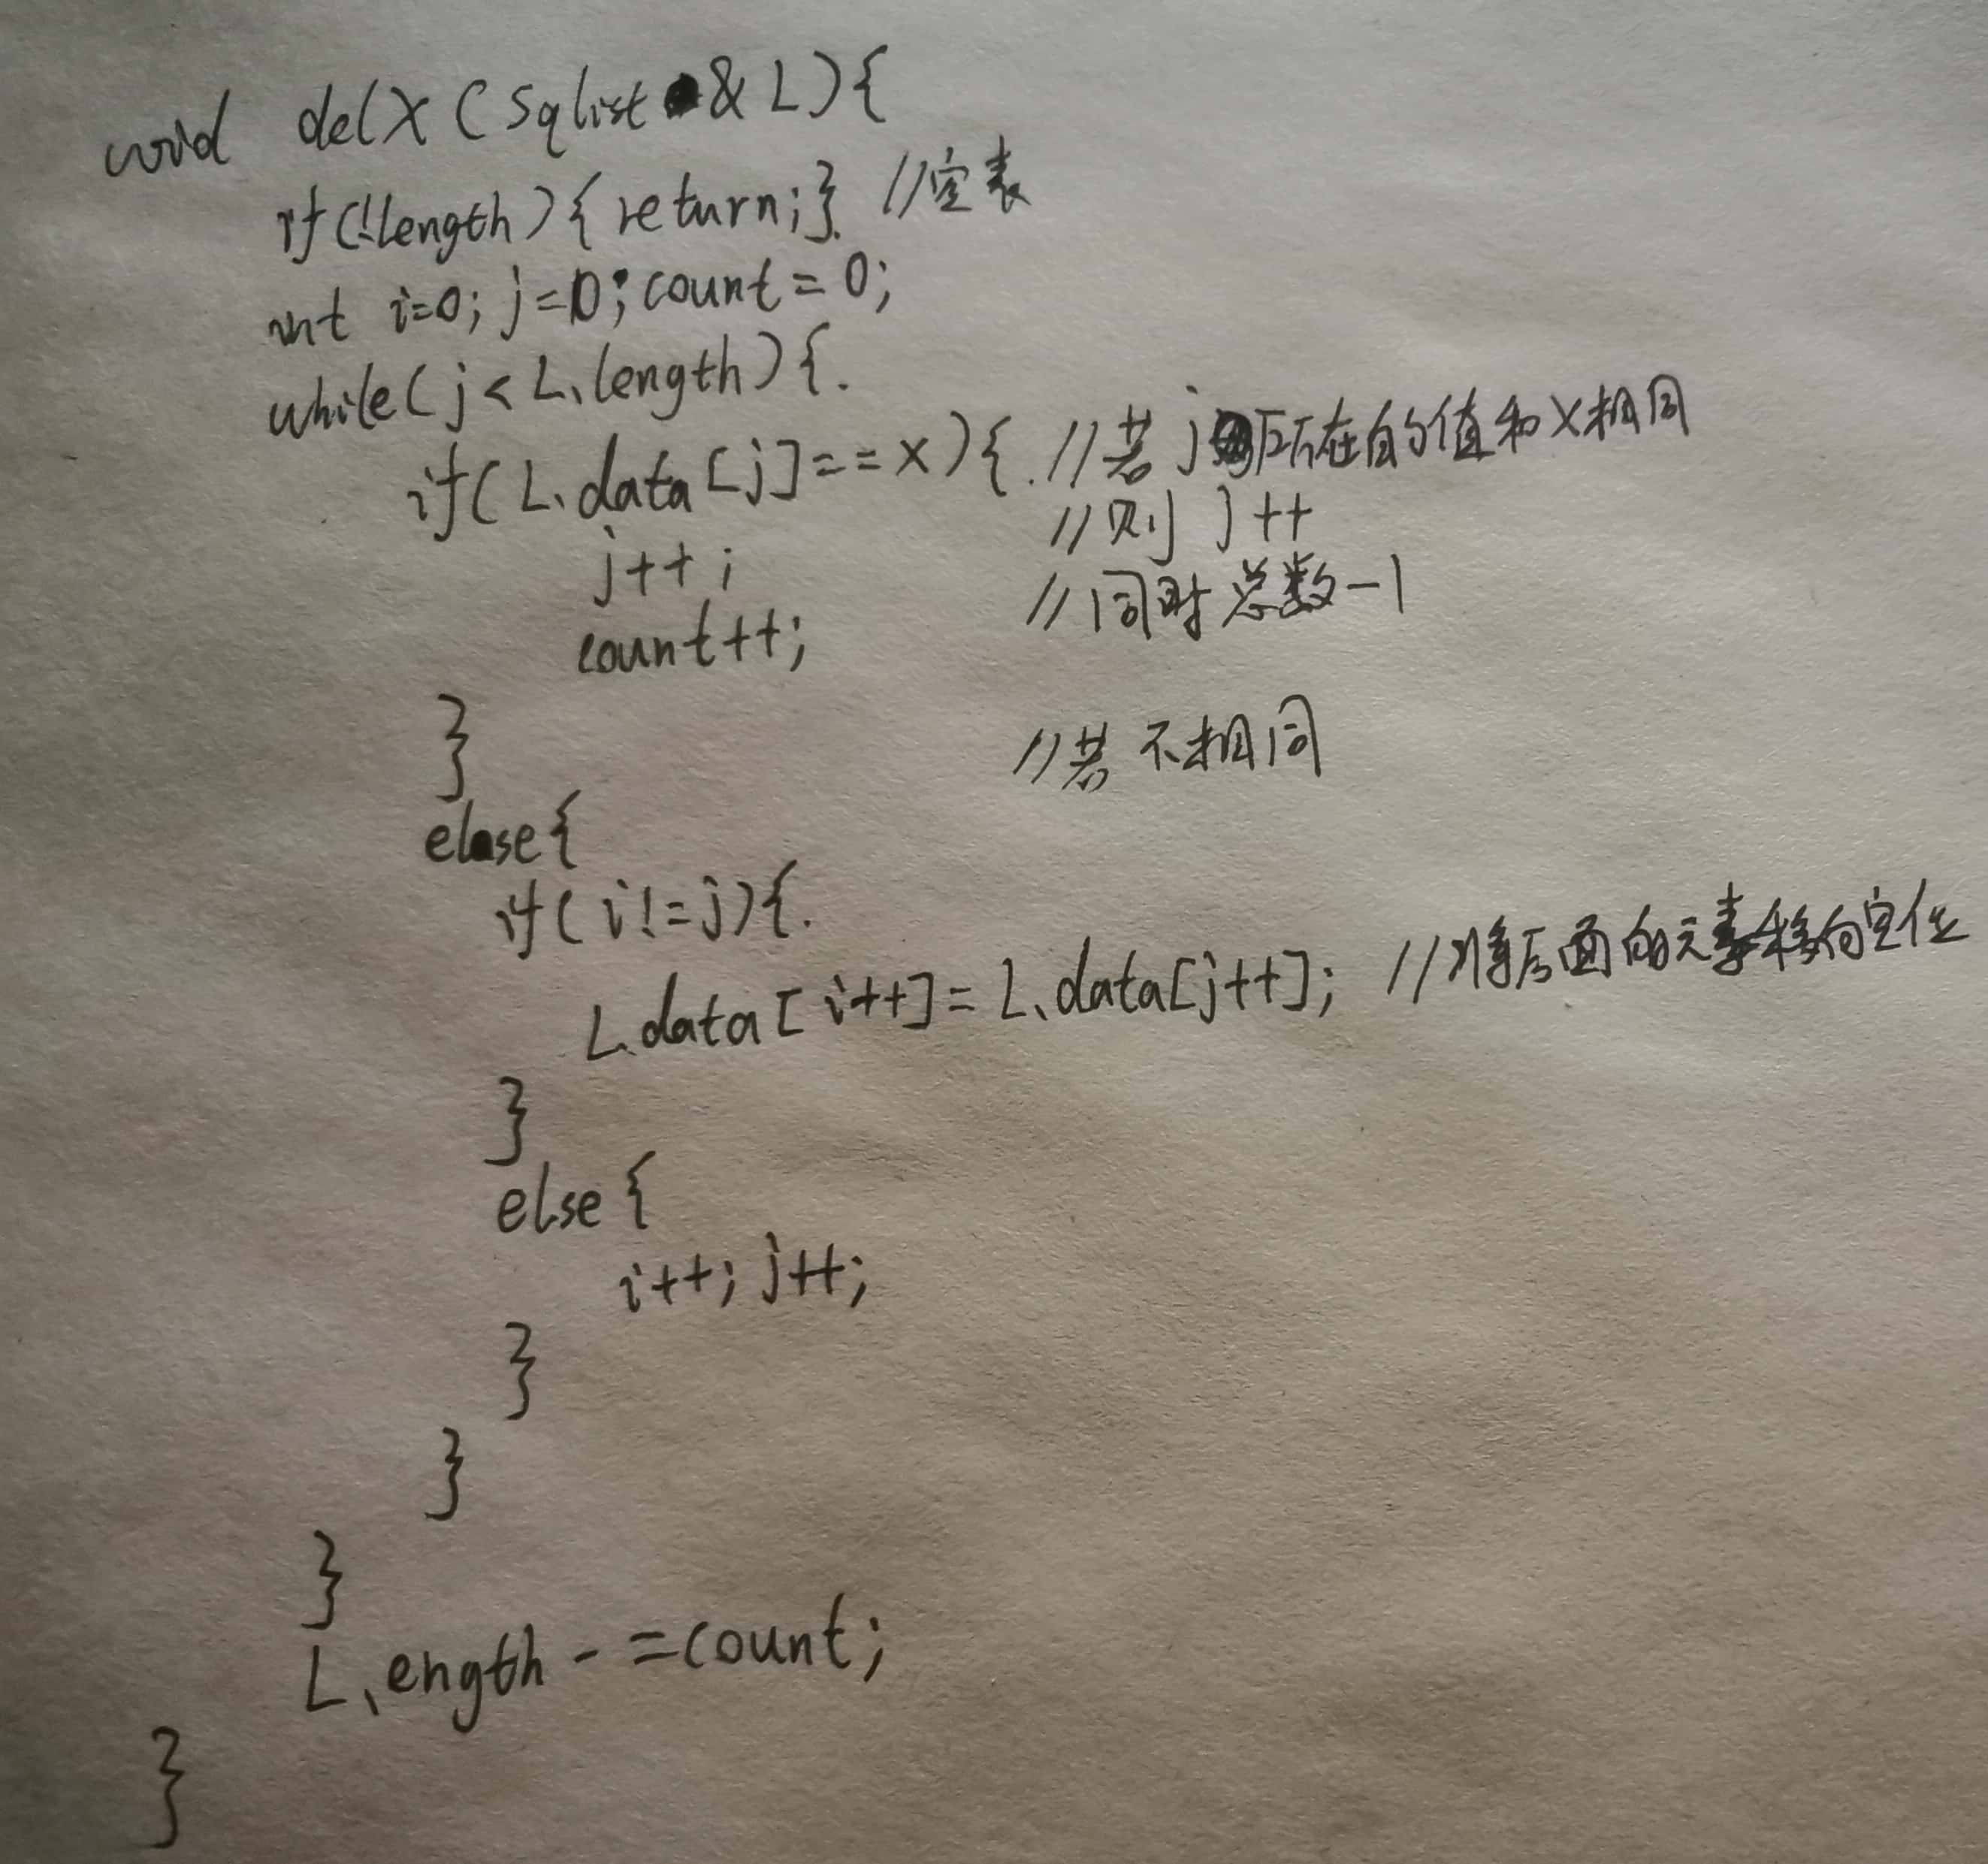 void delX(Sqlist & L){
if(!length){return;} //空表
int i=0; j=0; count=0;
while(j<L.length){
if(L.data[j]==x){ //若j所在的值和X相同
j++; //则 j++
count++; //同时总数-1
} //若不相同
else{
if(i!=j){
L.data[i++]=L.data[j++]; //将后面的元素移向空位
}
else{
i++; j++;
}
}
}
L.ength-=count;
}